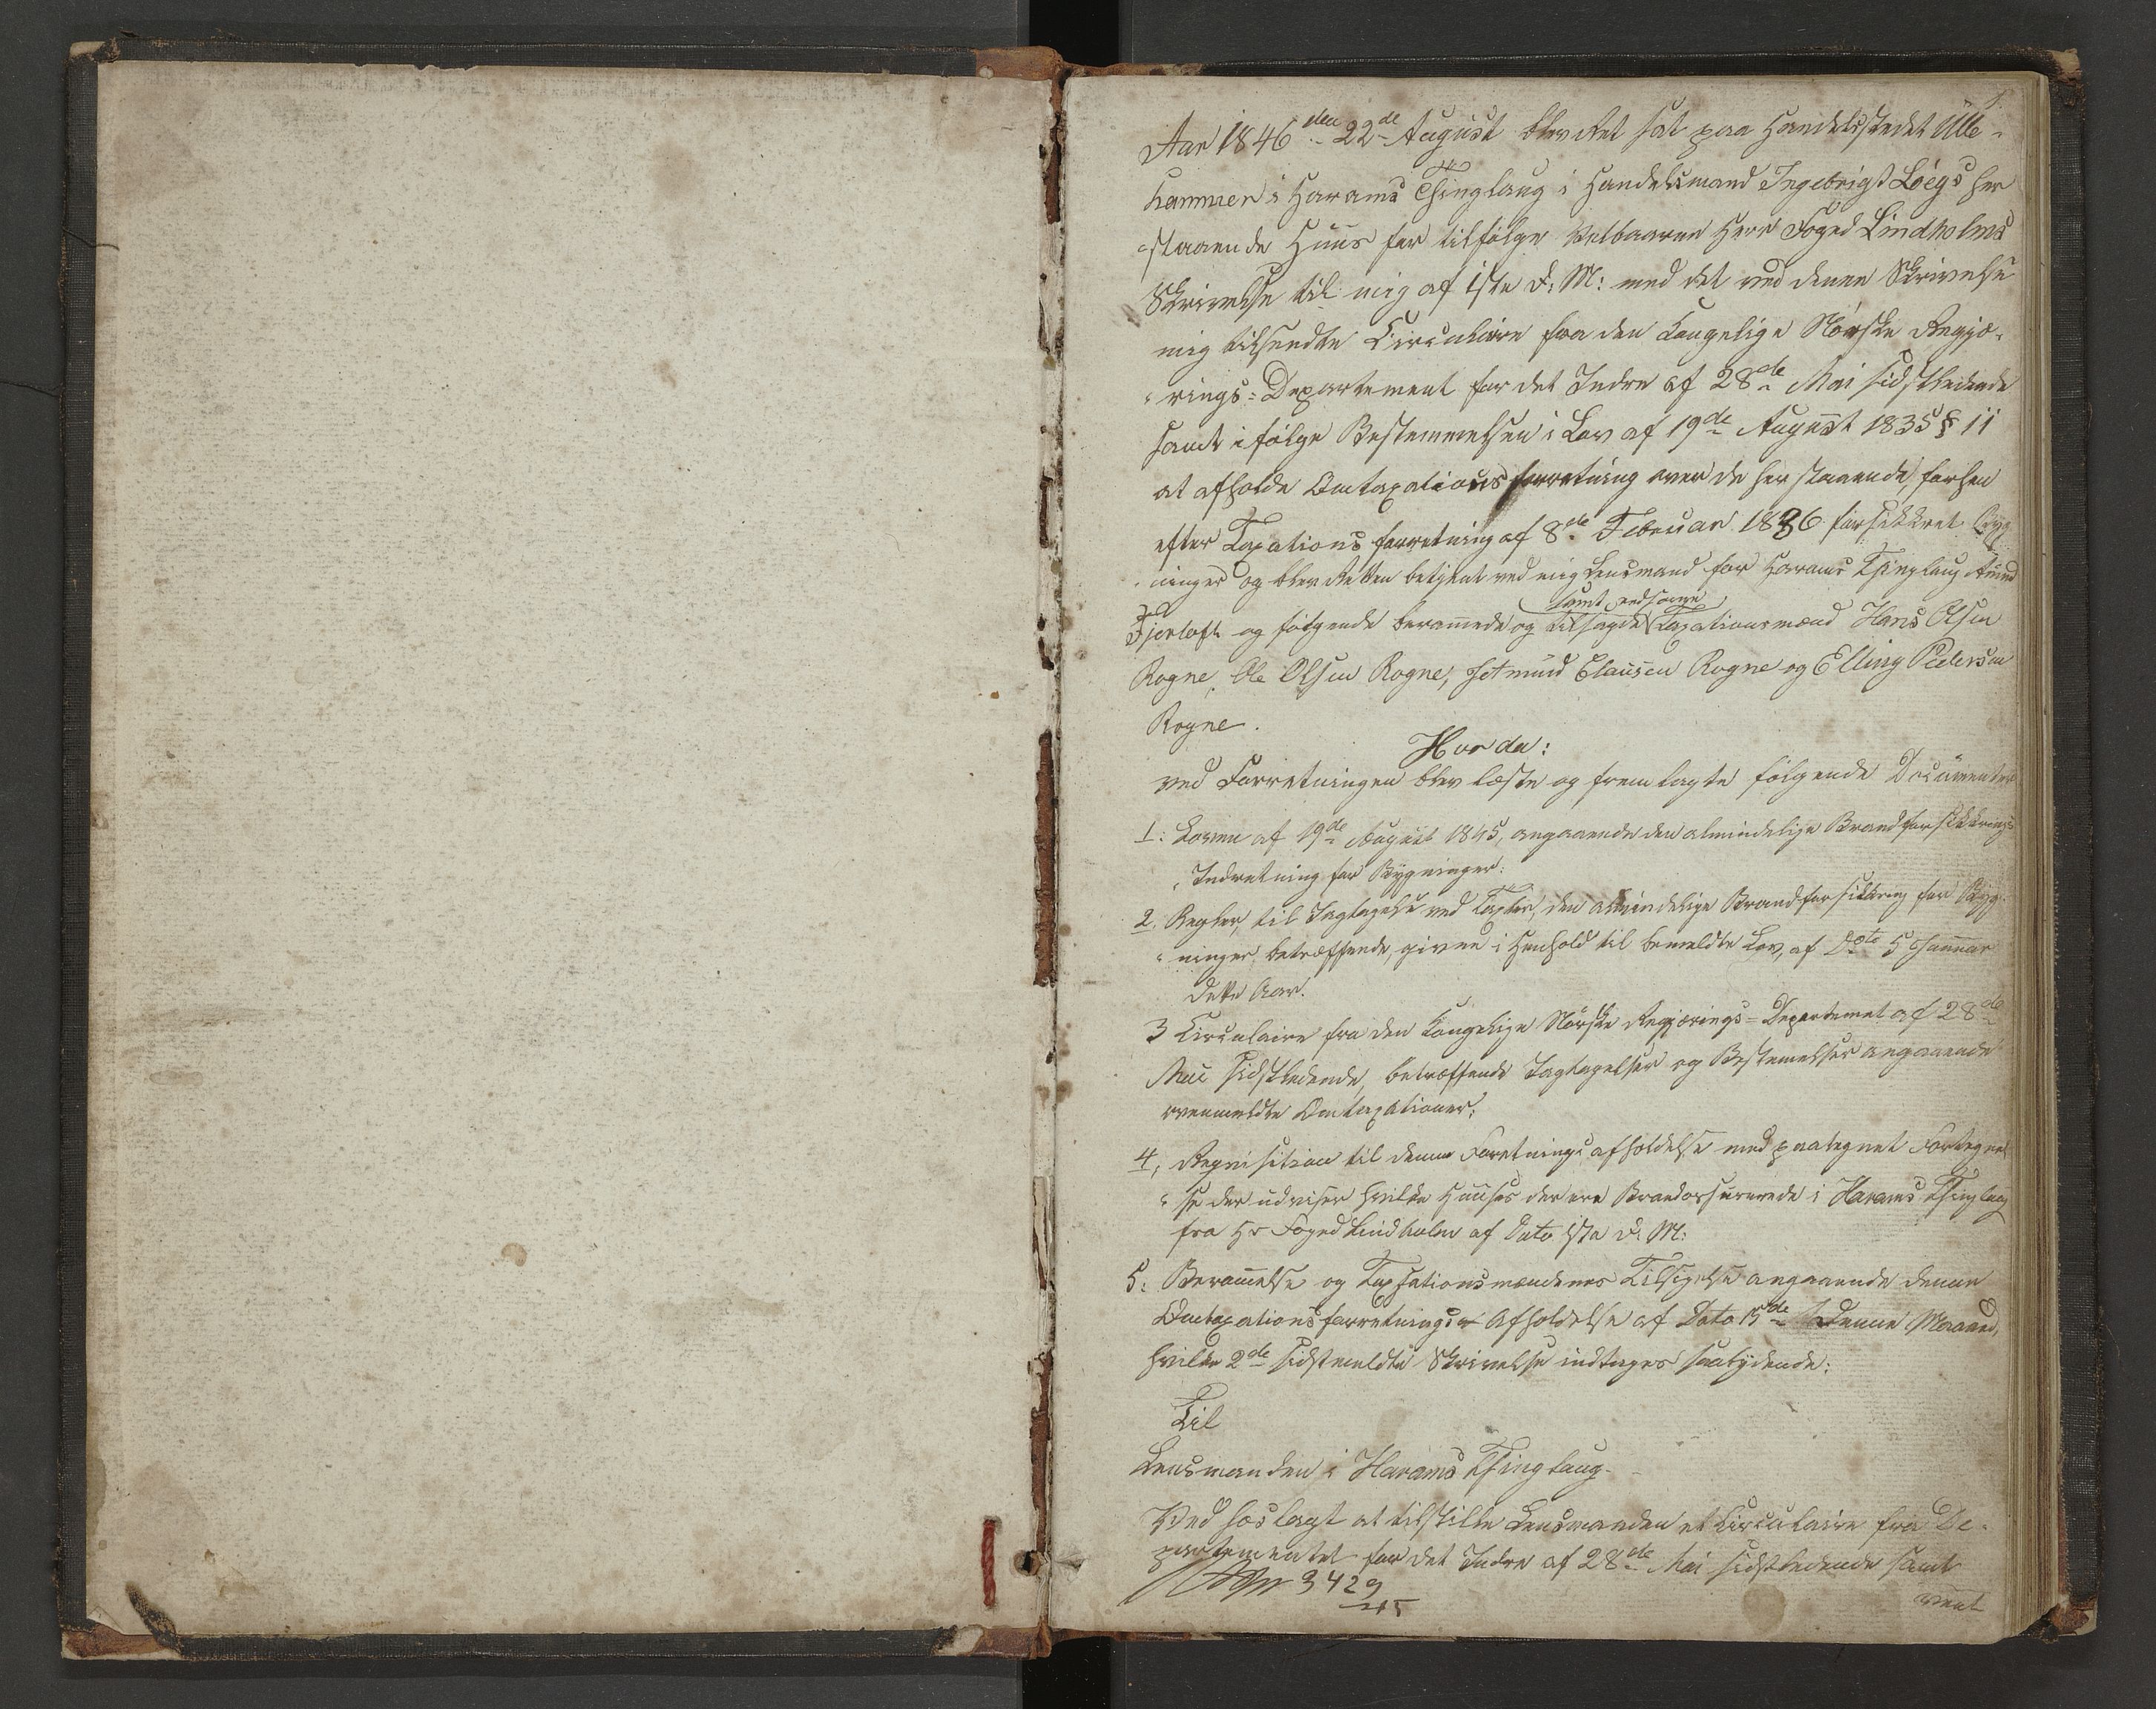 1.
Aar 1846 den 22de August blev Ret sat paa Handelsstedet Ulle-
hammer i Harams Thinglaug i Handelsmand Ingebrigt Loegs her
staaende Huus for tilfølge Velbaarne Herr Foged Lindholms
Skrivelse til mig af 1ste d: M: med det ved denne Skrivelse
mig tilsendte Circulaire fra den Kongelige Norske Regje-
"rings-Departement for det Indre af 28de Mai sidstledende
samt ifølge Bestemmelsen i Lov af 19de August 1835 § 11
at afholde Omtaxationsforretning over de her staaende, forhen
efter Taxationsforretning af 8de Februar 1836 forsikkret Byg
"ninger og blev Retten betjent ved mig Lensmand for Harams Thinglaug Amund
samt edsorne
Fjertoft og følgende beramede og tilsagde Taxationsmænd Hans Olsen
Rogne, Ole Olsen Rogne, Clausen Rogne og Elling Pedersen
Rogne.
Hvor da:
ved Forretningen blev læste og fremlagte følgende Documenter
1: Loven af 19de August 1845, angaaende den almindelige Brandforsikkrings
"Indretning for Bygninger:
2. Regler, til Iagtagelse ved Taxter, den almindelige Brandforsikkring for Byg-
"ninger betræffende, given i Henhold til bemeldte Lov, af Dato 5 Januar
dette Aar.
3 Circulaire fra den Kongelige Norske Regjerings-Departemet af 28de
Mai sidstledende, betræffende Iagtagelser og Bestemelser angaaende
ovenmeldte Omtaxationer;
4, Requisition til denne Foretnings afholdelse med paategnet Fortegnel
"se der udviser hvilke Huuse der ere Brandassurerede i Harams Thinglaug
fra Hr Foged Lindholm af Dato 1ste d: M:
5. Beramelse og Taxsationsmændenes Tilsigelse angaaende denne
Omtaxationsforretnings Afholdelse af Dato 15de denne Maaned,
hvilke 2de sidstmeldte Skrivelse indtages saalydende:
Til
Lensmanden i Harams Thinglaug.
Ved hoslagt at tilstille Lensmanden et Circulaire fra De-
partementet for det Indre af 28de Mai sidstledende samt
3429
45